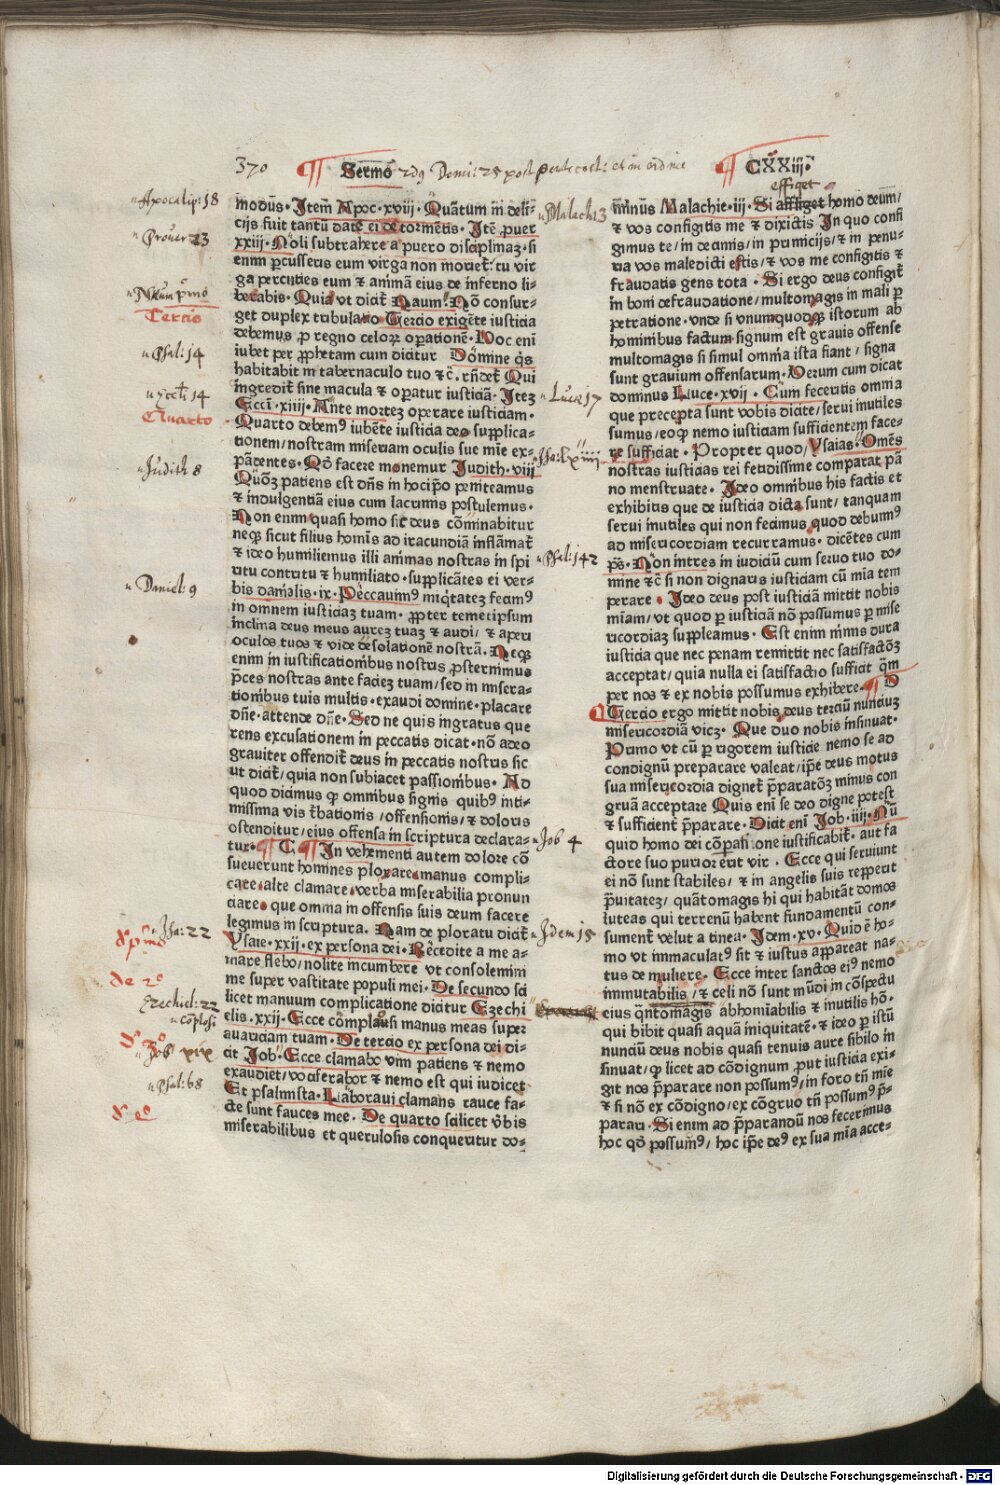 370 ¶ Sermo 2dꝰ Domi: 25 post pentecost: et in ordine ¶ CXXiij.
modus. Item Apoc. xvij. Quātum in deli-
cijs fuit tantū date ei de tormētis. Itē ꝓuer
xxiij. Noli subtrahere a puero disciplinaꝫ. si
enim ꝑcusseris eum virga non morietᷣ: tu vir
ga percuties eum ⁊ animā eius de inferno li-
berabis. Quia vt dicit Naum. Nō consur-
get duplex tribulatio Tercio exigēte iusticia
debemus ꝓ regno celoꝝ oꝑationē. Hoc eni
iubet per ꝓphetam cum dicitur Domine q̄s
habitabit in tabernaculo tuo ⁊c̄. rn̄det Qui
ingredit sine macula ⁊ oꝑatur iusticiā. Iteꝫ
Ecci. xiiij. Ante morteꝫ operare iusticiam.
Quarto debemꝰ iubēte iusticia deo supplica-
tionem/nostram miseriam oculis sue mie ex-
pādentes. Qō facere monemur Judith. viij
Quōꝫ patiens est dn̄s in hocipo peniteamus
⁊ indulgentiā eius cum lacrimis postulemus.
Non enim quasi homo sic deus cōminabitur
neqꝫ sicut filius homīs ad iracundiā inflāmat
⁊ ideo humiliemus illi animas nostras in spi
ritu contritu ⁊ humiliato. supplicātes ei ver-
bis danielis. ix. Peccauimꝰ iniqtateꝫ fecimꝰ
in omnem iusticiaꝫ tuam. ꝓpter temetipsum
inclina deus meus aureꝫ tuaꝫ ⁊ audi/ ⁊ aperi
oculos tuos ⁊ vide desolationē nostrā. Neqꝫ
enim in iustificationibus nostris ꝓsternimus
p̄ces nostras ante facieꝫ tuam/sed in misera-
tionibus tuis multis. exaudi domine. placare
dn̄e. attende dn̄e. Sed ne quis ingratus que
rens excusationem in peccatis dicat. nō adeo
grauiter offendit deus in peccatis nostris sic
ut dicit/ quia non subiacet passionibus. Ad
quod dicimus ꝙ omnibus signis quibꝰ inti-
missima vis t̄bationis/offensionis/⁊ doloris
ostenditur/eius offensa in scriptura declara-
tur. ¶ C ¶ In vehementi autem dolore cō
sueuerunt homines plorare. manus compli-
care. alte clamare. verba miserabilia pronun
ciare. que omnia in offensis suis deum facere
legimus in scriptura. Nam de ploratu dicit
Ysaie. xxij. ex persona dei. Recedite a me a-
mare flebo/nolite incumbere vt consolemini
me super vastitate populi mei. De secundo sci
licet manuum complicatione dicitur Ezechi
elis. xxij. Ecce complausi manus meas super
auariciam tuam. De tercio ex persona dei di-
cit Job. Ecce clamabo vim patiens ⁊ nemo
exaudiet/ vociferabor ⁊ nemo est qui iudicet
Et psalmista. Laboraui clamans rauce fa-
cte sunt fauces mee. De quarto scilicet v̄bis
miserabilibus et querulosis conqueritur do-
minus Malachie. iij. Si affliget homo deum/
⁊ vos configitis me ⁊ dixistis In quo confi
gimus te/ in decimis/ in primicijs/ ⁊ in penu-
ria vos maledicti estis/ ⁊ vos me configitis ⁊
fraudatis gens tota. Si ergo deus configit
in boni defraudatione/ multomagis in mali ꝑ
petratione. vnde si vnumquodqꝫ istorum ab
hominibus factum signum est grauis offense
multomagis si simul omnia ista fiant/ signa
sunt grauium offensarum. Verum cum dicat
dominus Luce. xvij. Cum feceritis omnia
que precepta sunt vobis dicite/ serui inutiles
sumus/ eo ꝙ nemo iusticiam sufficientem face-
re sufficiat. Propter quod/ Ysaias. Omēs
nostras iusticias rei fetidissime comparat pā
no menstruate. Ideo omnibus his factis et
exhibitis que de iusticia dicta sunt/ tanquam
serui inutiles qui non fecimus quod debuimꝰ
ad misericordiam recurramus. dicētes cum
pꝰ. Non intres in iudiciū cum seruo tuo do-
mine ⁊c̄ si non dignaris iusticiam cū mia tem
perare. Ideo deus post iusticiā mittit nobis
miam/ vt quod ꝑ iusticiā nō possumus ꝑ mise
ricordiaꝫ suppleamus. Est enim nimis dura
iusticia que nec penam remittit nec satisfactōꝫ
acceptat/ quia nulla ei satisfactio sufficit q̄m
per nos ⁊ ex nobis possumus exhibere. ¶ D
Tercio ergo mittit nobis deus terciū nunciuꝫ
misericordiā vicꝫ. Que duo nobis insinuat.
Primo vt cū ꝑ rigorem iusticie nemo se ad
condignū preparare valeat/ ip̄e deus motus
sua misericordia dignet p̄paratōꝫ minus con
gruā acceptare Quis enī se deo digne potest
⁊ sufficient p̄parare. Dicit enī Job. iiij. Nū
quid homo dei cōpati.one iustificabit. aut fa
ctore suo purior erit vir. Ecce qui seruiunt
ei nō sunt stabiles/ ⁊ in angelis suis repperit
p̄uitateꝫ/ quātomagis hi qui habitāt domos
luteas qui terrenū habent fundamentū con-
sument velut a tinea. Idem. xv. Quid ē ho-
mo vt immaculatꝰ sit ⁊ iustus appareat na-
tus de muliere. Ecce inter sanctos eiꝰ nemo
immutabilis/ ⁊ celi nō sunt mūdi in cōspectu
eius qn̄tomagis abhomiabilis ⁊ inutilis hō.
qui bibit quasi aquā iniquitatē. ⁊ ideo ꝑ istū
nunciū deus nobis quasi tenuis aure sibilo in
sinuat/ ꝙ licet ad cōdignum ꝓut iusticia exi-
git nos p̄parare non possumꝰ/ in foro tn̄ mie
⁊ si nō ex cōdigno/ ex cōgruo tn̄ possumꝰ p̄-
parari. Si enim ad p̄parandū nos fecerimus
hoc qō possumꝰ/ hoc ip̄e deꝰ ex sua mia acce-
Apocalip: 18
Prouer 23
Nahum p̄mo
Tercio
Psal: 14
Eccli 14
Quarto
Judith 8
Daniel: 9
Isa: 22
de 2º
Ezechiel: 22
cōplosi
Job xix
Psal: 68
effiget
Malach 3
Luce 17
Isa: lxiiii
Psal: 142
Job 4
Idem 15
Digitalisierung gefördert durch die Deutsche Forschungsgemeinschaft - DFG